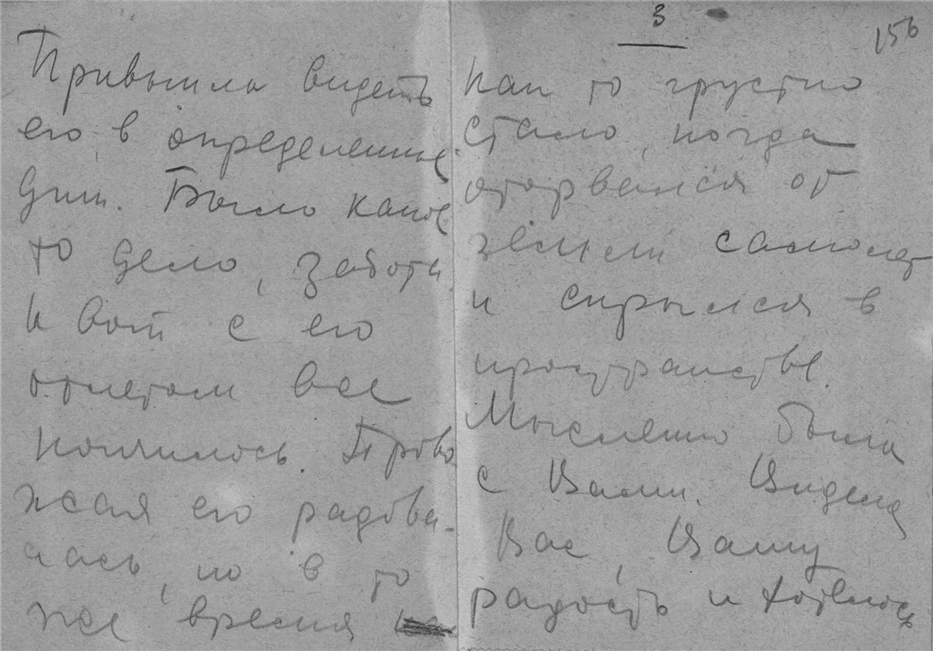 Привыкла видеть
его в определенные
дни. Было какое
то дело, забота.
И вот с его
отлетом все
кончилось. Прово
жая его радова-
лась, но в то
же время
3
156
как то грустно
стало, когда
оторвался от
земли самолет
и скрылся в
пространстве.
Мысленно была
с Вами. Видела
Вас, Вашу
радость и хотелось